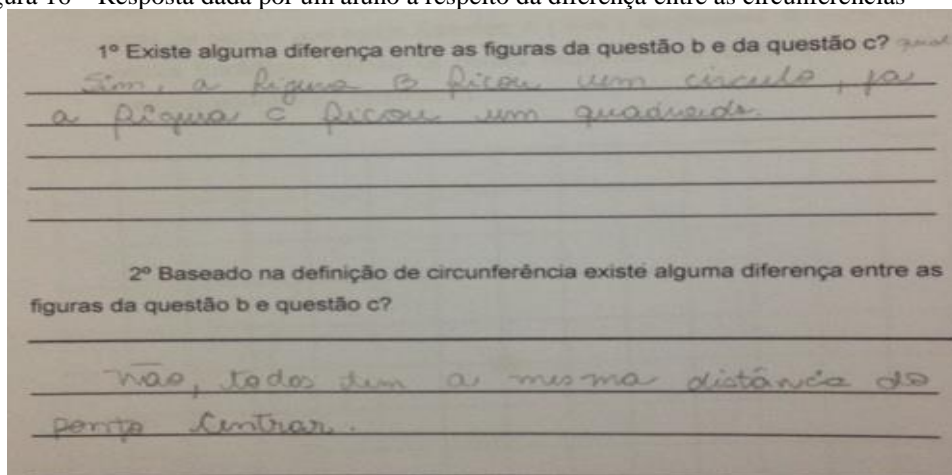 ura 16 – Resposta dada por um aluno a respeito da diferença entre as circunferências
1º Existe alguma diferença entre as figuras da questão b e da questão c? qual
Sim, a figura B ficou um circulo, ja
a figura C ficou um quadrado.
2º Baseado na definição de circunferência existe alguma diferença entre as
figuras da questão b e questão c?
não, todos tem a mesma distância do
ponto Centrar.